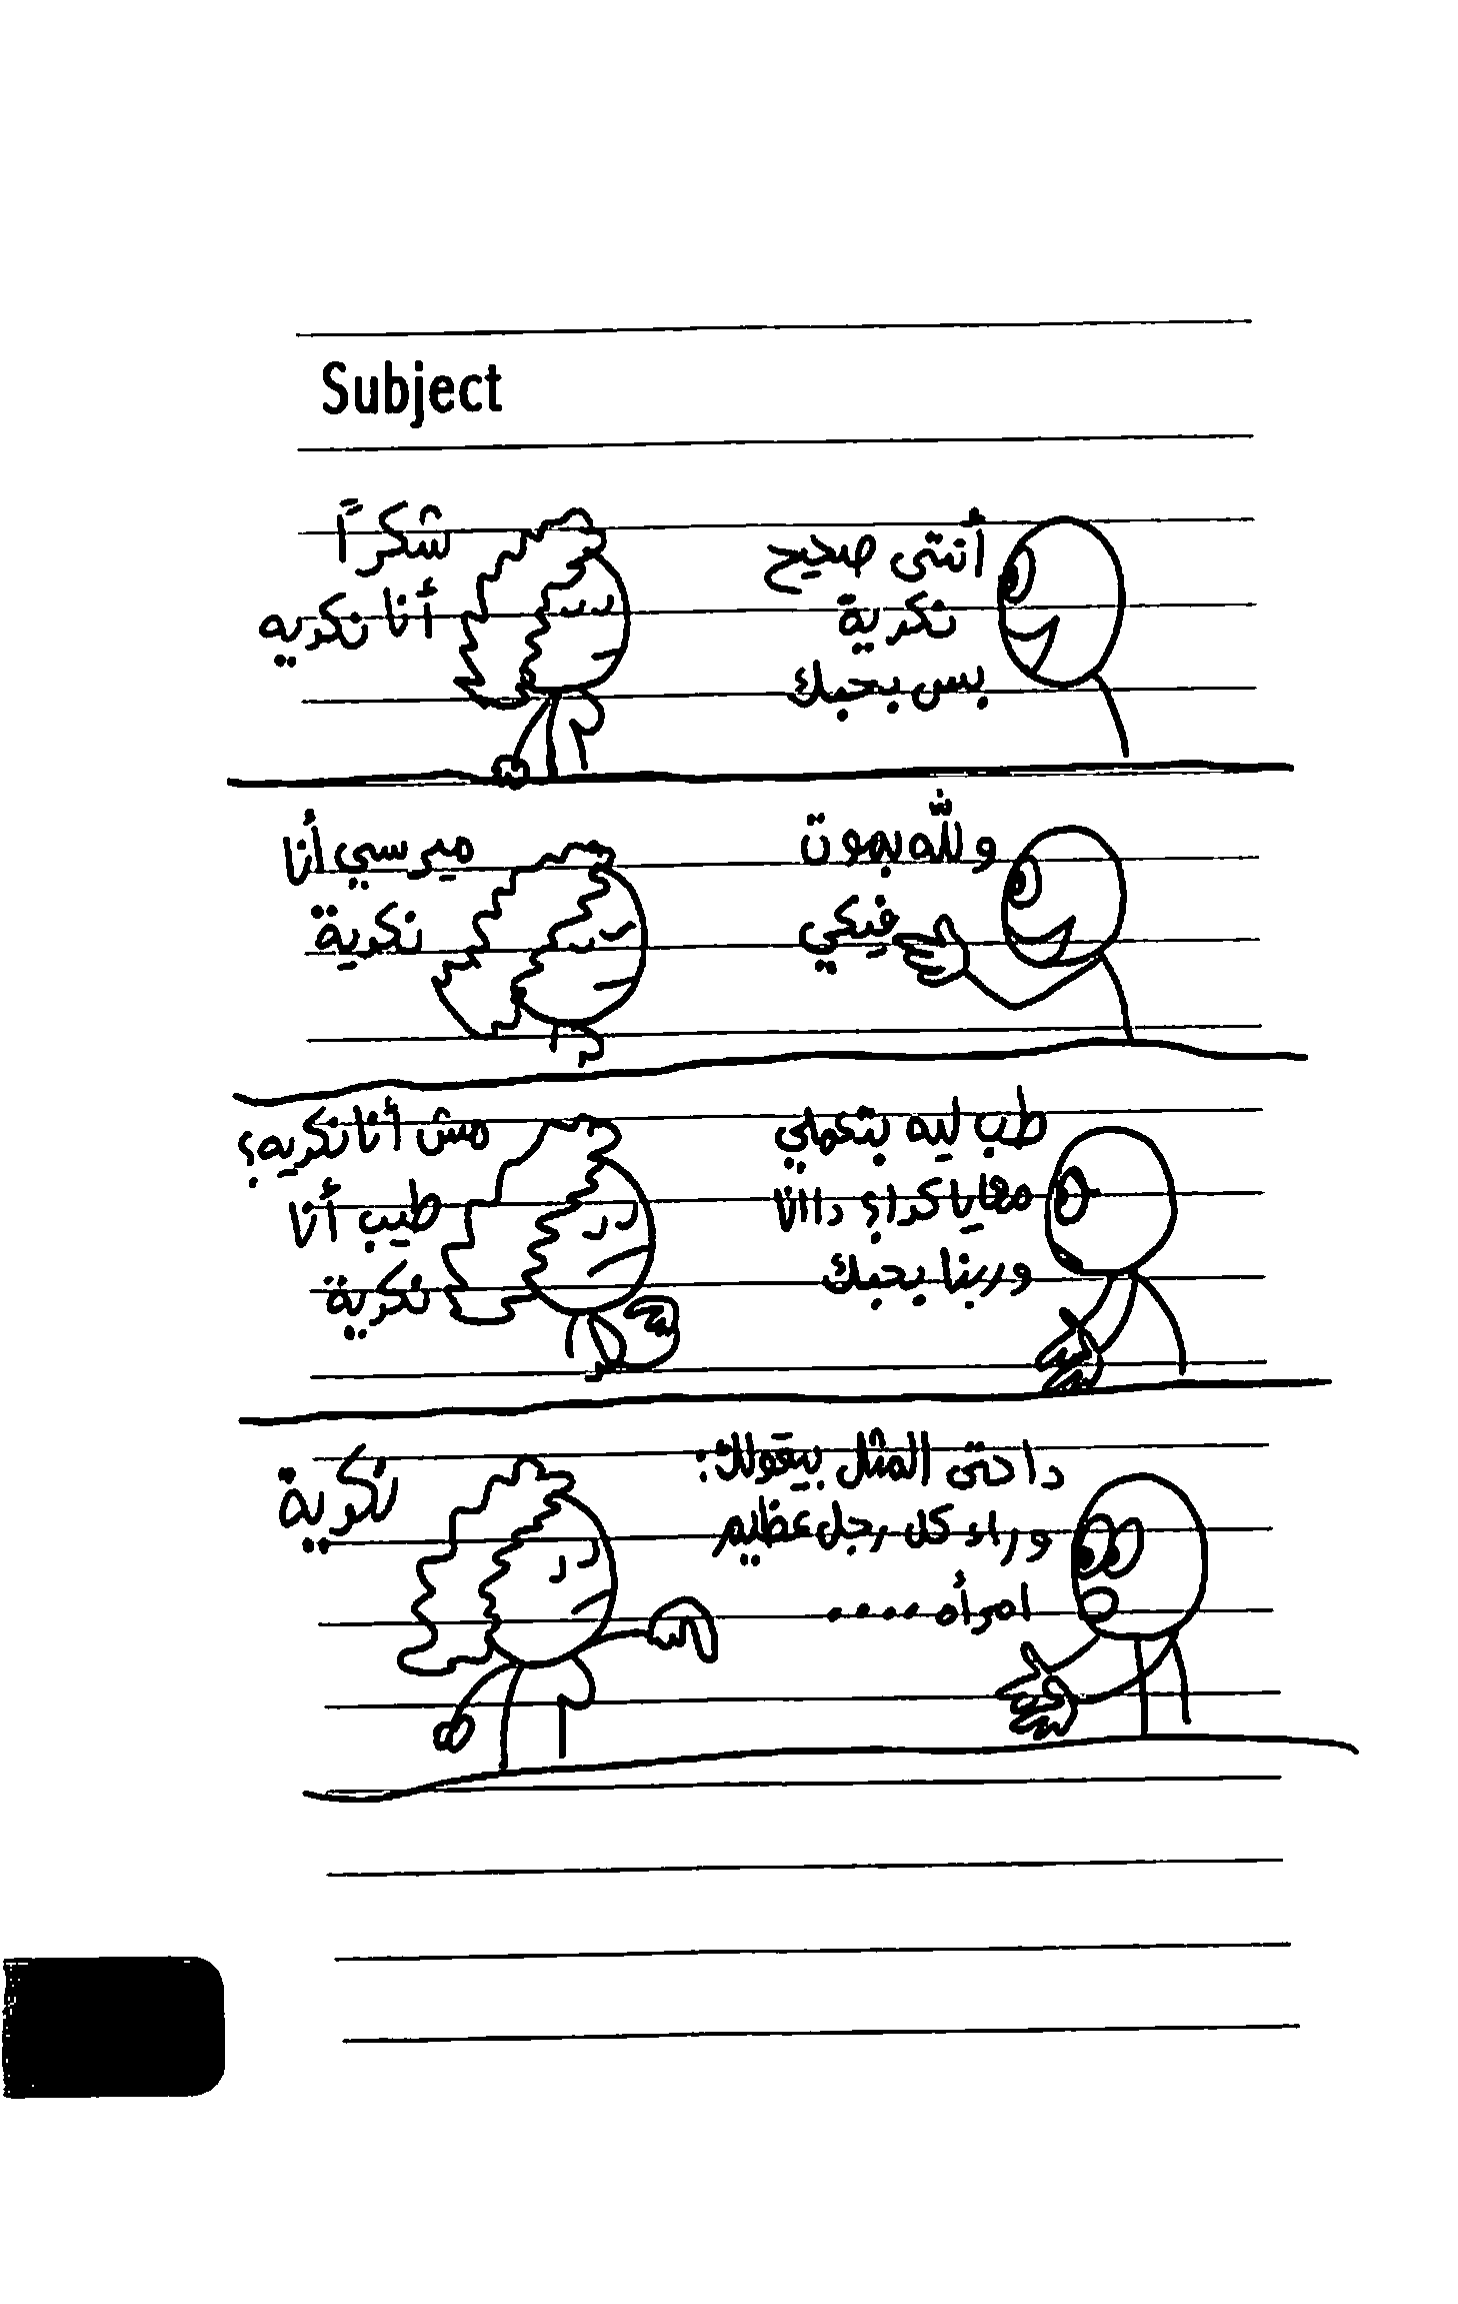 Subject
أنتى صحيح
نكرية
بس بحبك
شكراً
أنا نكريه
وللّه بموت
فيكي
ميرسي أنا
نكرية
طب ليه بتعملي
معايا كدا؟ داانا
وربنا بحبك
مش أنا نكريه؟
طيب أنا
نكرية
دا حتى المثل بيقولك:
وراء كل رجل عظيم
امرأه ....
نكرية